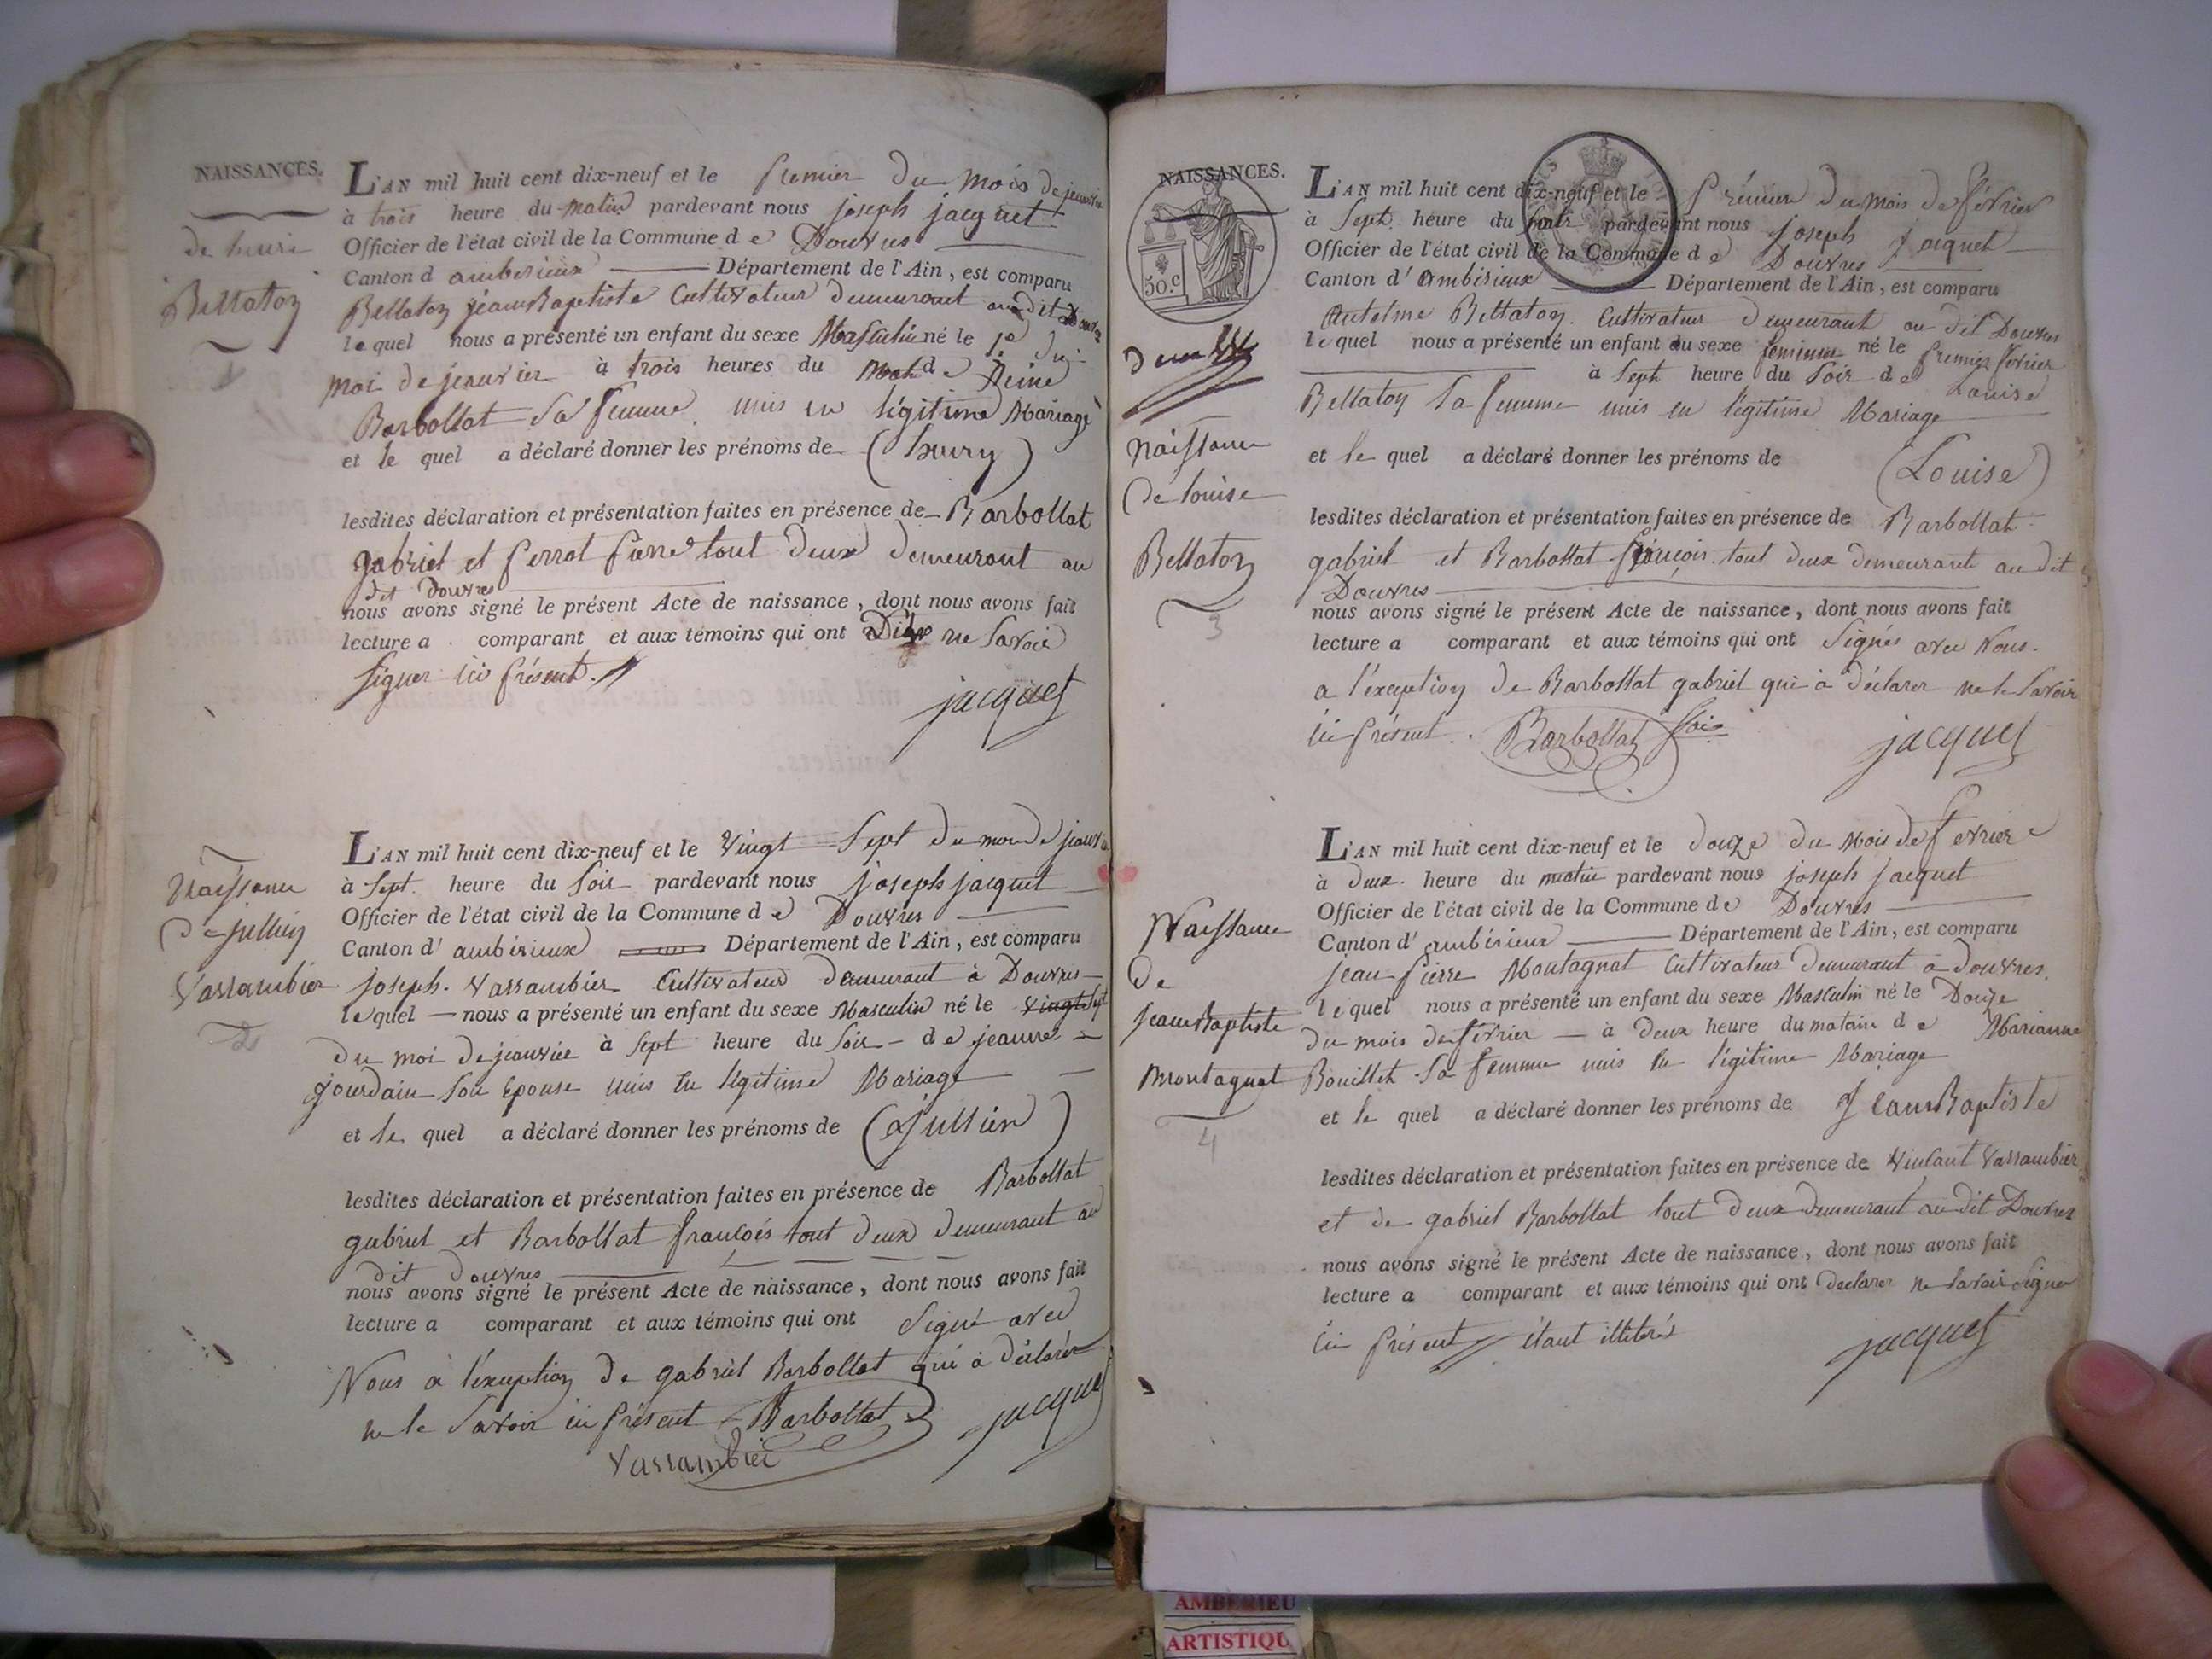 NAISSANCES.
de henri
Bellaton
1
L'AN mil huit cent dix-neuf et le Premier Du Mois De jeanvier
à trois heure du matin pardevant nous joseph jacquet
Officier de l'état civil de la Commune d e Douvres
Canton d ambérieux Département de l'Ain, est comparu
Bellaton jeanBaptiste Cultivateur Demeurant audit Douvres
lequel nous a présenté un enfant du sexe Masculin né le 1er du
moi de jeanvier à trois heures du mat de Reine
Barbollat sa femme unis en légitime Mariage
et le quel a déclaré donner les prénoms de (henry)
lesdites déclaration et présentation faites en présence de Barbollat
gabriel et Perrot Pierre tout Deux demeurant au
dit Douvres
nous avons signé le présent Acte de naissance, dont nous avons fait
lecture a comparant et aux témoins qui ont ne Savoir
signer ici présent.
jacquet
Naissance
De jullien
Varrambier
2
L'AN mil huit cent dix-neuf et le Vingt Sept Du moi de jeanvier
à Sept heure du Soir pardevant nous joseph jacquet
Officier de l'état civil de la Commune d e Douvres
Canton d' ambérieux Département de l'Ain, est comparu
joseph. Varrambier Cultivateur demeurant à Douvres
le quel nous a présenté un enfant du sexe Masculin né le vingt Sept
Du moi De jeanvier à Sept heure du Soir d e jeanne
jourdain Son Epouse unis en légitime Mariage
et le quel a déclaré donner les prénoms de (Jullien)
lesdites déclaration et présentation faites en présence de Barbollat
gabriel et Barbollat françoés tout deux demeurant au
dit Douvres
nous avons signé le présent Acte de naissance, dont nous avons fait
lecture a comparant et aux témoins qui ont Signé avec
Nous à l'éxception de gabriel Barbollat qui à déclarer
ne le Savoir ici présent Barbollat jacquet
Varrambier
NAISSANCES.
50.c
Naissance
De louise
Bellaton
3
L'AN mil huit cent dix-neuf et le Prémier du mois de février
à Sept heure du soir pardevant nous joseph jacquet
Officier de l'état civil de la Commune d e Douvres
Canton d' Ambérieux Département de l'Ain, est comparu
Antelme Bellaton Cultivateur demeurant au dit Douvres
lequel nous a présenté un enfant du sexe feminin né le premier février
à Sept heure du Soir d e Louise
Bellaton Sa femme unis en légitime Mariage
et le quel a déclaré donner les prénoms de (Louise)
lesdites déclaration et présentation faites en présence de Barbollat
gabriel et Barbollat françois tout deux demeurant au dit
Douvres
nous avons signé le présent Acte de naissance, dont nous avons fait
lecture a comparant et aux témoins qui ont Signés avec Nous.
a l'éxception de Barbollat gabriel qui à déclarer ne le Savoir
ici présent. Barbollat fois jacquet
Naissance
De
JeanBaptiste
Montagnat
4
L'AN mil huit cent dix-neuf et le douze du Mois de fevrier
à deux heure du matin pardevant nous joseph jacquet
Officier de l'état civil de la Commune de Douvres
Canton d' ambérieux Département de l'Ain, est comparu
jean pierre Montagnat Cultivateur demeurant à douvres.
lequel nous a présenté un enfant du sexe Masculin né le Douze
du mois de février à deux heure du matain d e Marianne
Bouillet Sa femme unis en légitime Mariage
et le quel a déclaré donner les prénoms de JeanBaptiste
lesdites déclaration et présentation faites en présence de Vincant Varrambier
et de gabriel Barbollat tout deux demeurant au dit Douvres
nous avons signé le présent Acte de naissance, dont nous avons fait
lecture a comparant et aux témoins qui ont declarer ne Savoir Signer
ici présent étant illiterés
jacquet
AMBERIEU
ARTISTIQU